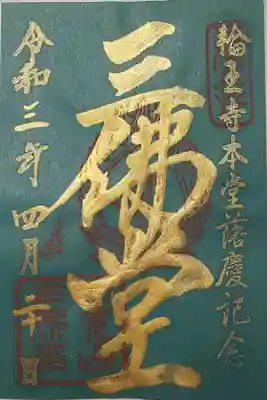 輪王寺本堂落慶記念
三佛堂
令和三年四月二十日